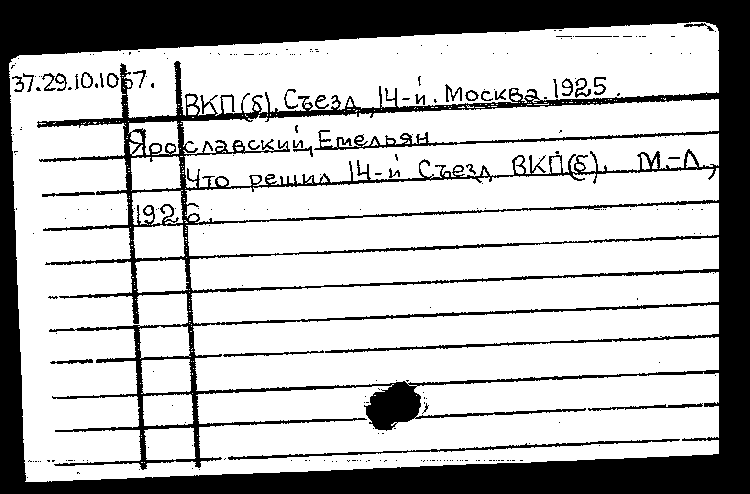 37.29.10.1057.
ВКП(б). Съезд, 14-й. Москва. 1925.
Ярославский, Емельян
Что решил 14-й Съезд ВКП(б). М.-Л.,
1926.